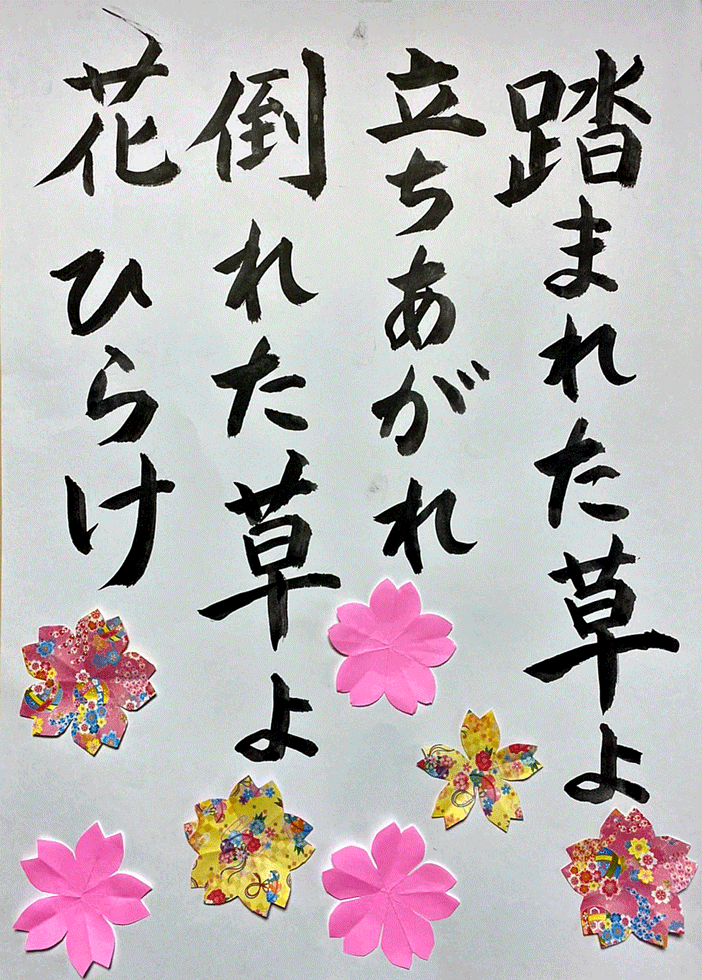 踏まれた草よ
立ちあがれ
倒れた草よ
花ひらけ